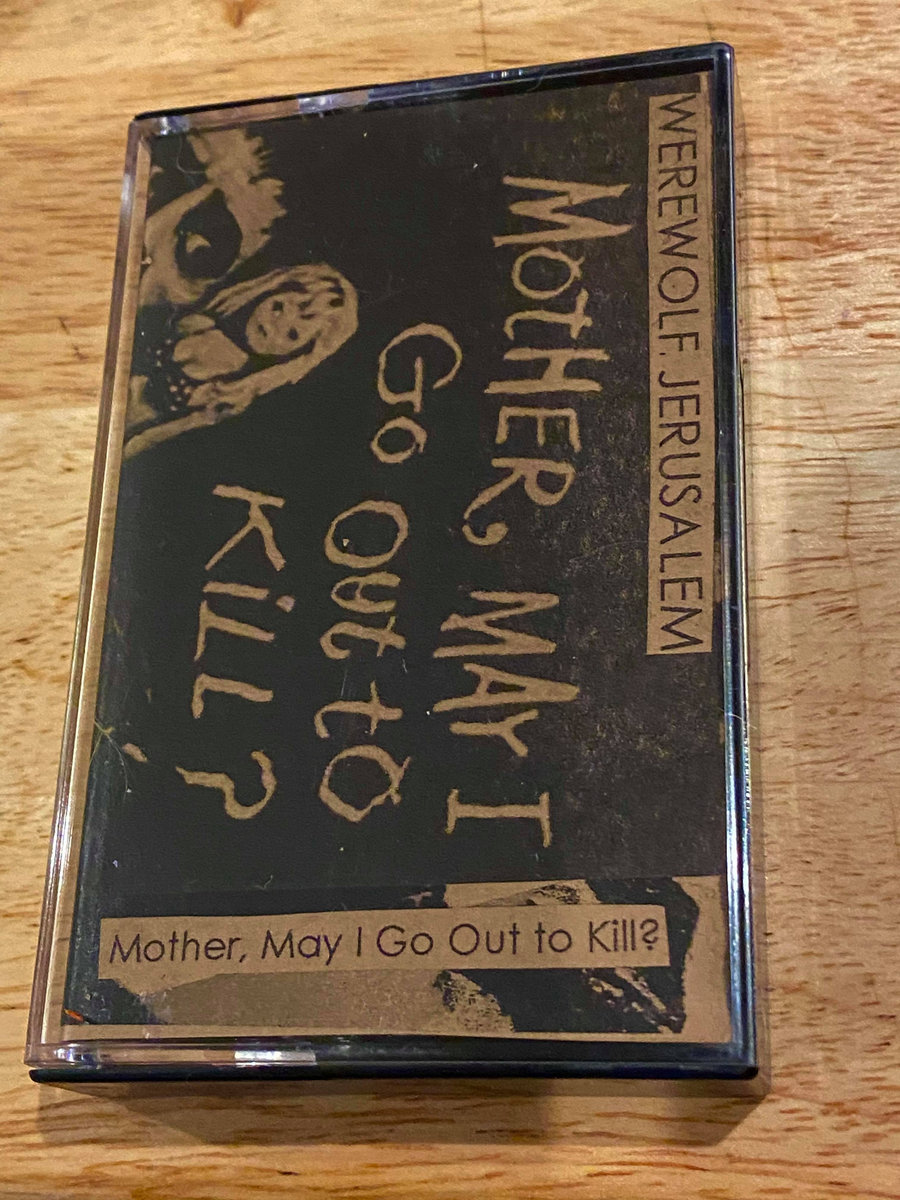 WEREWOLF JERUSALEM
MOTHER, MAY I
GO OUT TO
KILL?
Mother, May I Go Out to Kill?